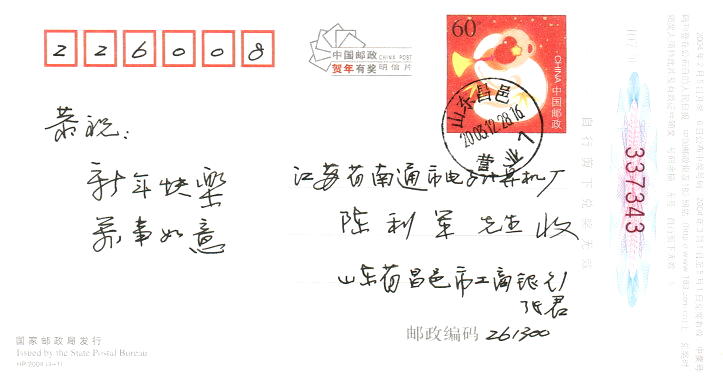 226008
中国邮政 CHINA POST
贺年有奖 明信片
60分
CHINA 中国邮政
山东昌邑
2003.12.28.16
营业
恭祝：
新年快樂
萬事如意
江苏省南通市电子计算机厂
陈利军 先生 收
山东省昌邑市工商银行
张君
邮政编码 261300
国家邮政局发行
Issued by the State Postal Bureau
HP2004 (4-1)
自行剪下兑奖无效
337343